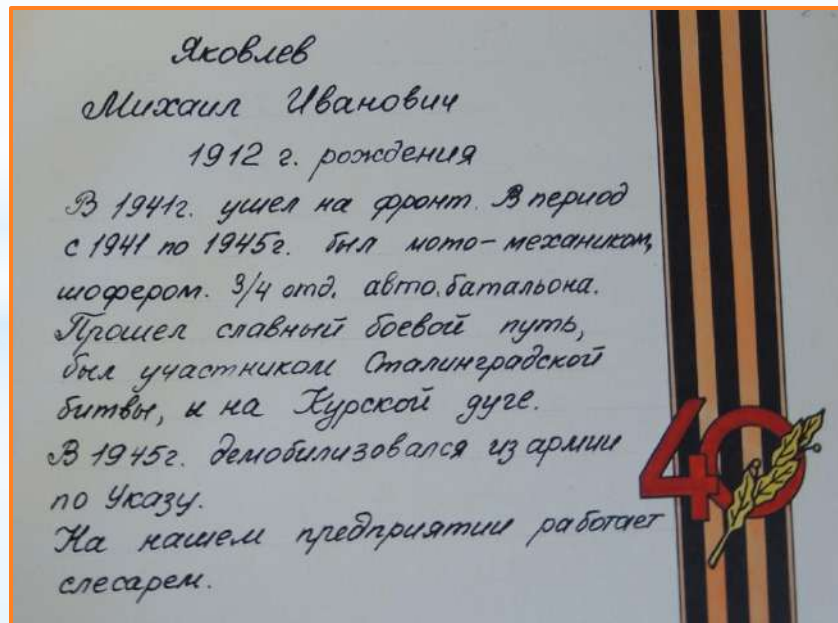 Яковлев
Михаил Иванович
1912 г. рождения
В 1941г. ушел на фронт. В период
с 1941 по 1945г. был мото-механиком,
шофером. 3/4 отд. авто.батальона.
Прошел славный боевой путь,
был участником Сталинградской
битвы, и на Курской дуге.
В 1945г. демобилизовался из армии
по Указу.
На нашем предприятии работает
слесарем.
40